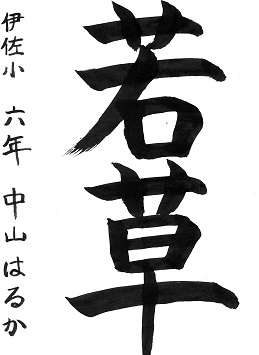 若草
伊佐小 六年 中山はるか